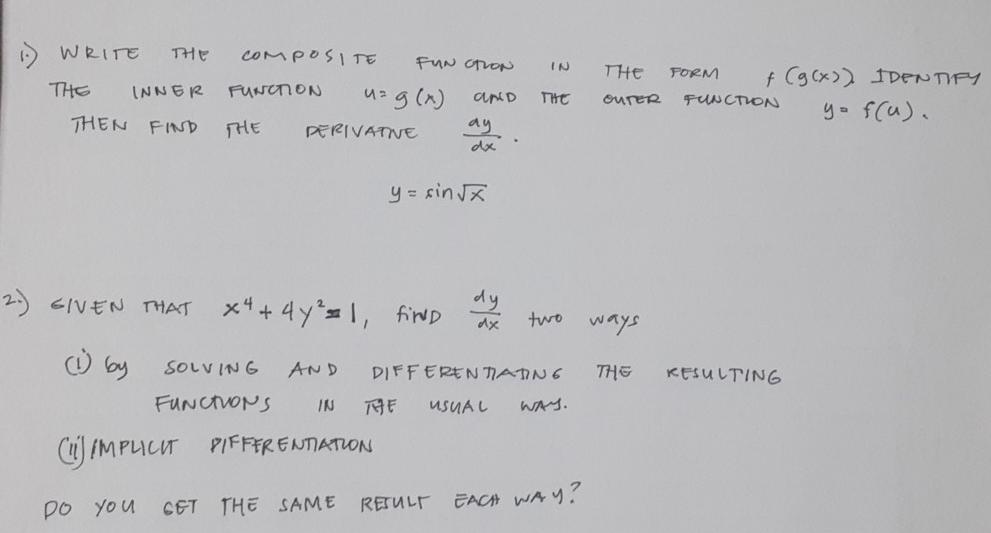 1.) WRITE THE COMPOSITE FUNCTION IN THE FORM f(g(x)) IDENTIFY
THE INNER FUNCTION u = g(x) AND THE OUTER FUNCTION y = f(u).
THEN FIND THE DERIVATIVE dy/dx.
y = sin√x
2.) GIVEN THAT x⁴ + 4y² = 1, FIND dy/dx two ways
(i) by SOLVING AND DIFFERENTIATING THE RESULTING
FUNCTIONS IN THE USUAL WAY.
(ii) IMPLICIT DIFFERENTIATION
DO YOU GET THE SAME RESULT EACH WAY?